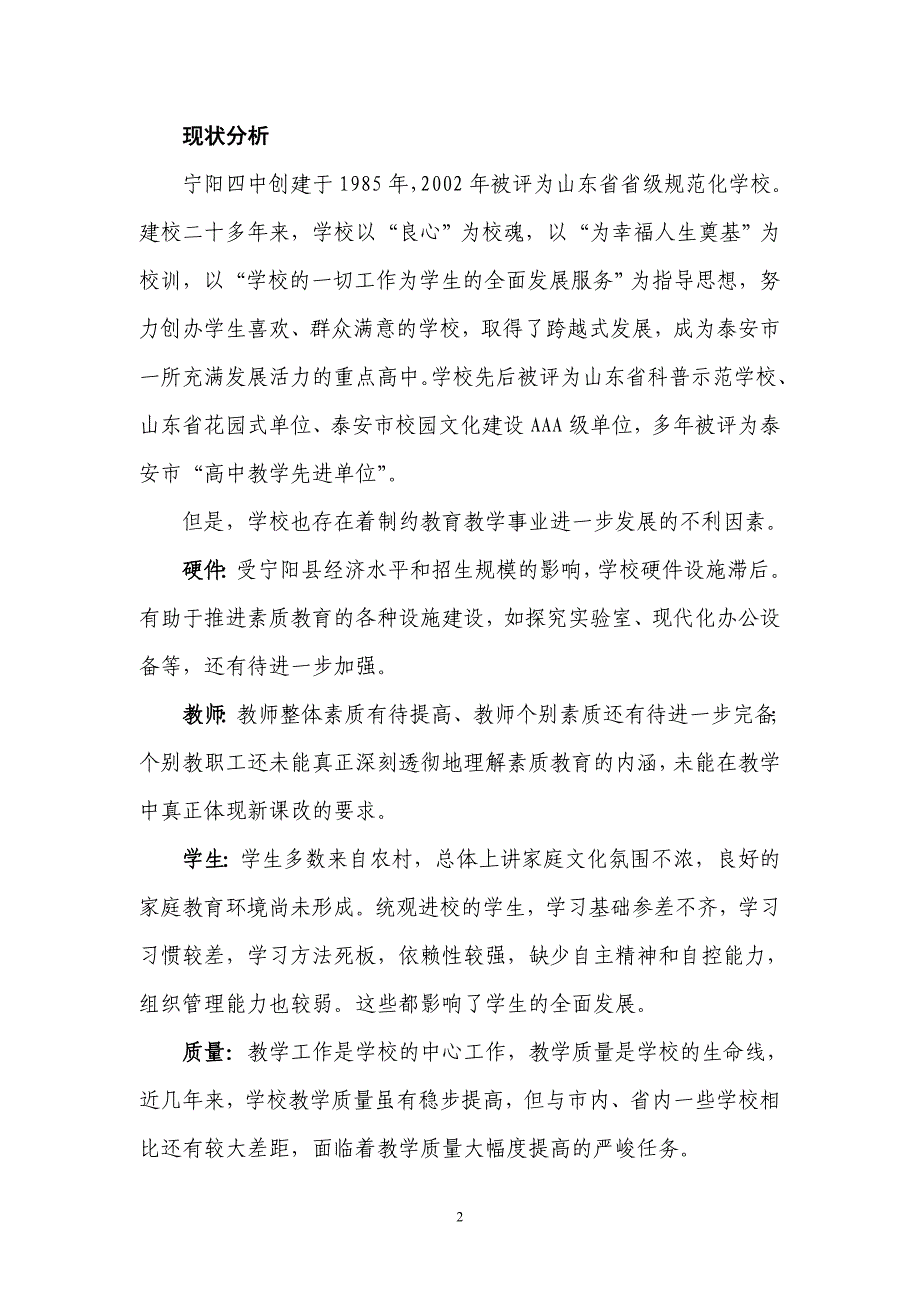 现状分析
宁阳四中创建于 1985 年，2002 年被评为山东省省级规范化学校。
建校二十多年来，学校以“良心”为校魂，以“为幸福人生奠基”为
校训，以“学校的一切工作为学生的全面发展服务”为指导思想，努
力创办学生喜欢、群众满意的学校，取得了跨越式发展，成为泰安市
一所充满发展活力的重点高中。学校先后被评为山东省科普示范学校、
山东省花园式单位、泰安市校园文化建设 AAA 级单位，多年被评为泰
安市“高中教学先进单位”。
但是，学校也存在着制约教育教学事业进一步发展的不利因素。
硬件：受宁阳县经济水平和招生规模的影响，学校硬件设施滞后。
有助于推进素质教育的各种设施建设，如探究实验室、现代化办公设
备等，还有待进一步加强。
教师：教师整体素质有待提高、教师个别素质还有待进一步完备；
个别教职工还未能真正深刻透彻地理解素质教育的内涵，未能在教学
中真正体现新课改的要求。
学生：学生多数来自农村，总体上讲家庭文化氛围不浓，良好的
家庭教育环境尚未形成。统观进校的学生，学习基础参差不齐，学习
习惯较差，学习方法死板，依赖性较强，缺少自主精神和自控能力，
组织管理能力也较弱。这些都影响了学生的全面发展。
质量：教学工作是学校的中心工作，教学质量是学校的生命线，
近几年来，学校教学质量虽有稳步提高，但与市内、省内一些学校相
比还有较大差距，面临着教学质量大幅度提高的严峻任务。
2